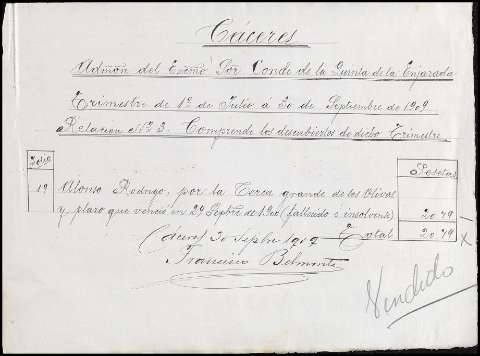 Cáceres
Admón del Excmo Sor Conde de la Quinta de la Enjarada
Trimestre de 1º de Julio á 30 de Septiembre de 1909
Relacion nº 3. Comprende los descubiertos de dicho Trimestre
Folio Pesetas
12 Alonso Rodrigo, por la Cerca grande de los Olivos
y plazo que venció en 29 Septbre de (fallecido é insolvente) 20 79
Cáceres 30 Sepbre 1909 Total 20 79
Francisco Belmonte
Vendido